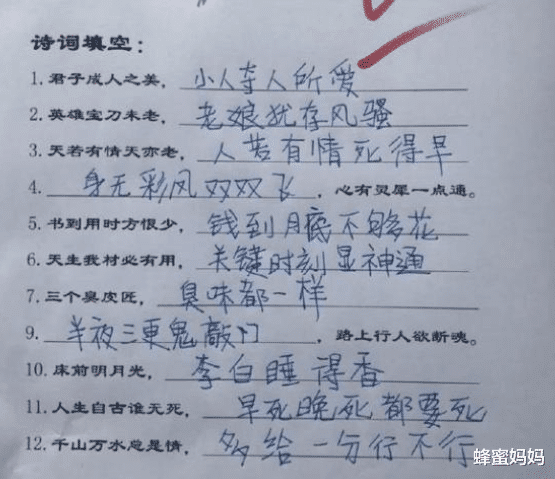 诗词填空：
1.君子成人之美，小人夺人所爱
2.英雄宝刀未老，老娘犹存风骚
3.天若有情天亦老，人若有情死得早
4.身无彩凤双双飞，心有灵犀一点通。
5.书到用时方恨少，钱到月底不够花
6.天生我材必有用，关键时刻显神通
7.三个臭皮匠，臭味都一样
9.半夜三更鬼敲门，路上行人欲断魂。
10.床前明月光，李白睡得香
11.人生自古谁无死，早死晚死都要死
12.千山万水总是情，多给一分行不行
蜂蜜妈妈